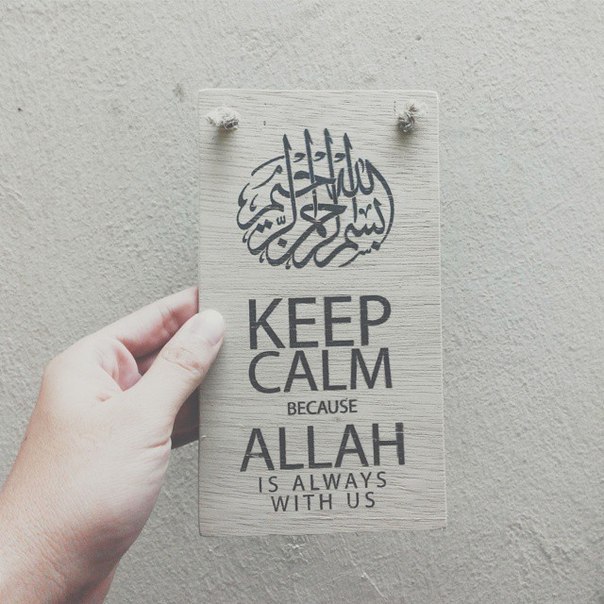 بسم الله الرحمن الرحيم
KEEP
CALM
BECAUSE
ALLAH
IS ALWAYS
WITH US